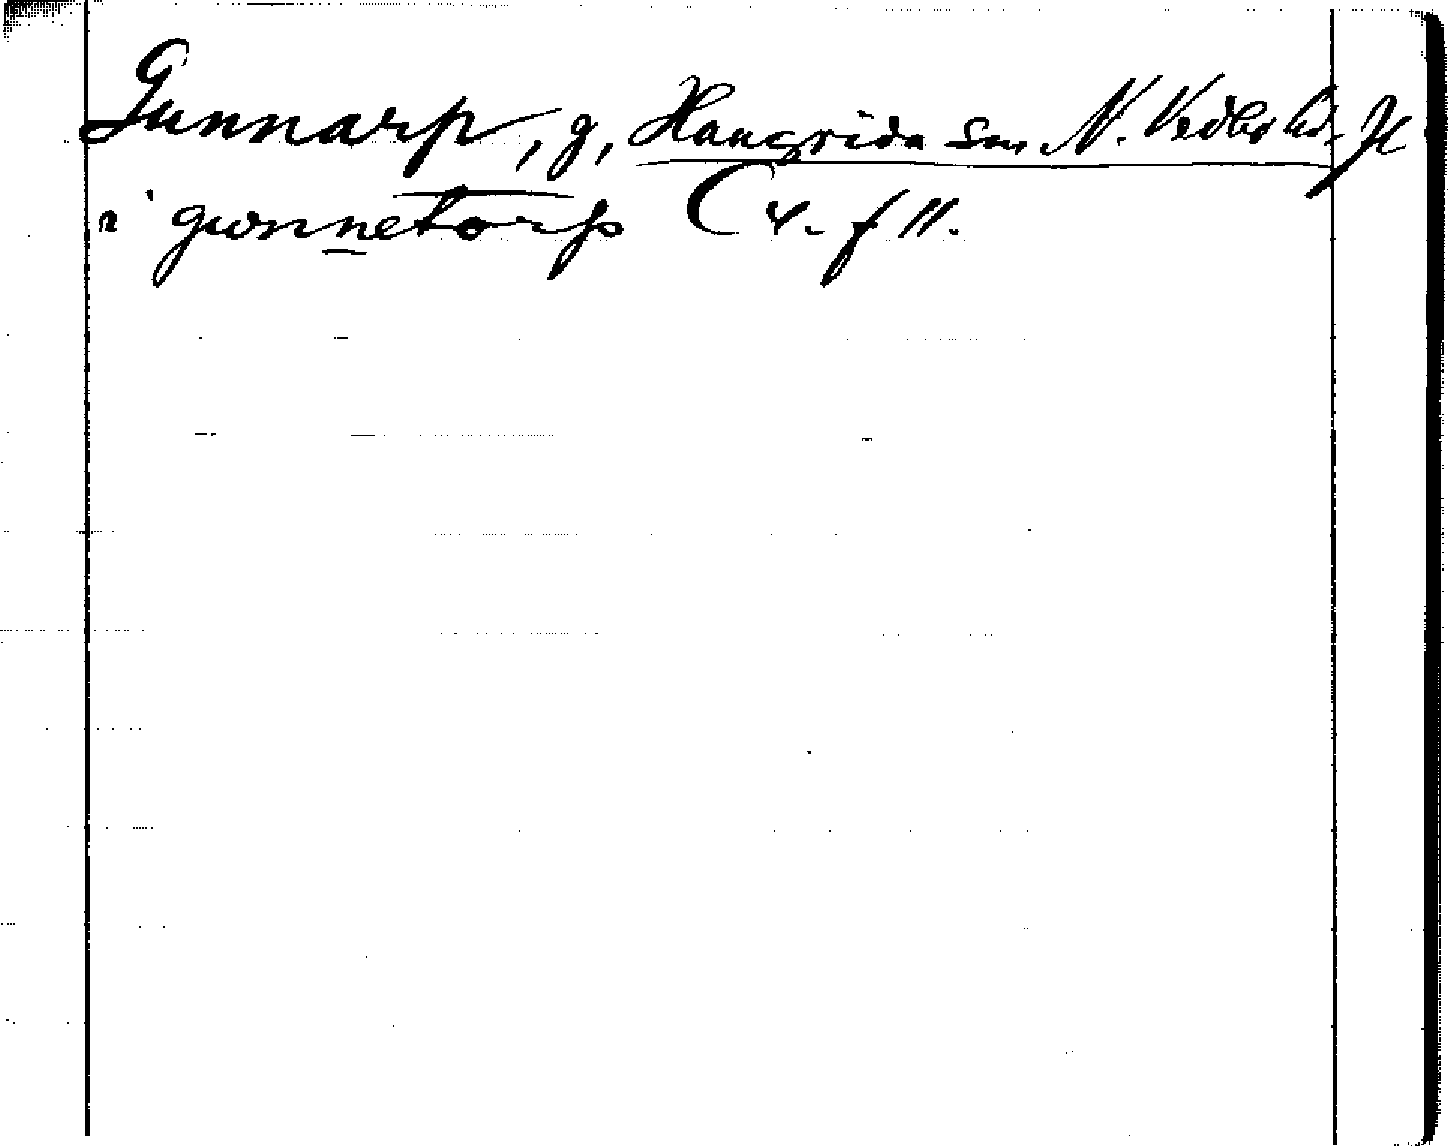 Gunnarp, g, Haugrida sn, N. Vedbo hd, Jl
i gunnetorp C 4. f 11.